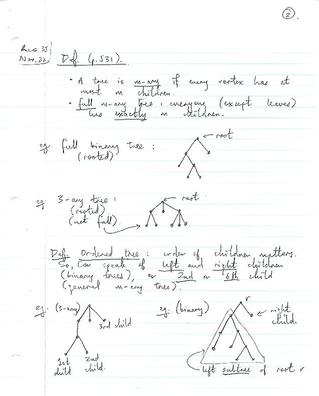 ②.
Lec 33
Nov. 22. Def. (p.531).
• A tree is m-ary if every vertex has at
most m children.
• full m-ary tree : everyone (except leaves)
has exactly m children.
eg full binary tree :
(rooted)
root
eg 3-ary tree :
(rooted)
(not full)
root
Def. Ordered tree : order of children matters.
So, can speak of left and right children
(binary trees), or 2nd or 6th child
(general m-ary tree).
eg. (3-ary)
3rd child
1st child
2nd child.
eg. (binary)
r
right child.
left subtree of root r